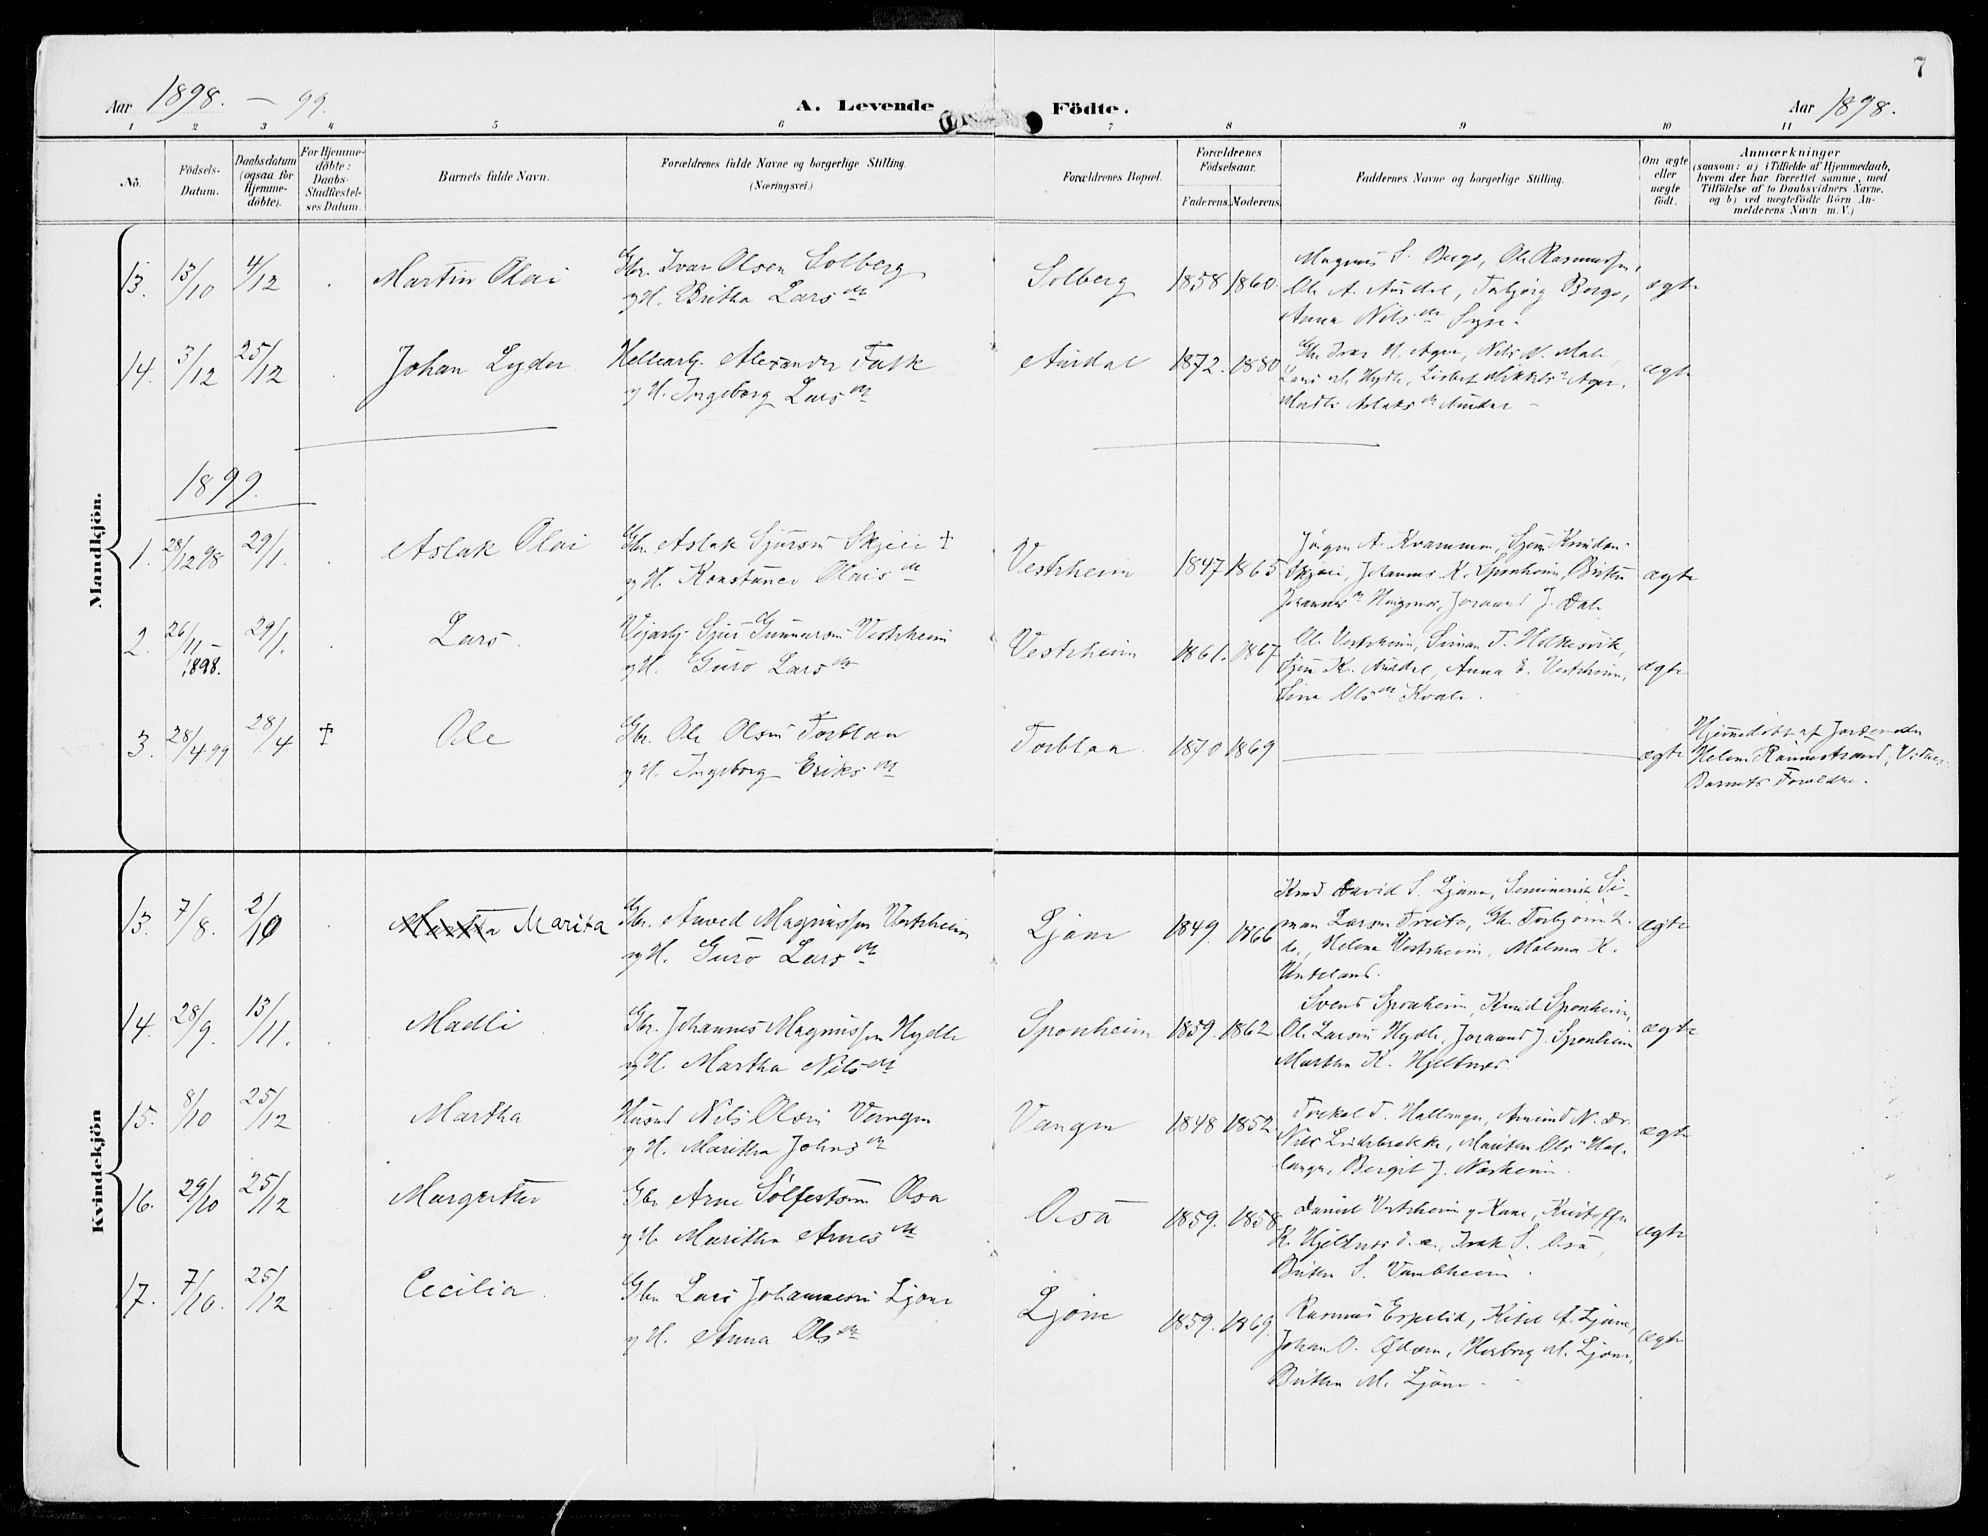 7
Aar 1898. – 99.
A. Levende Födte.
Aar 1898.
1 2 3 4 5 6 7 8 9 10 11
No.
Födsels-
Datum.
Daabsdatum
(ogsaa for
Hjemme-
döbte).
For Hjemme-
döbte:
Daabs-
Stadfæstel-
ses Datum.
Barnets fulde Navn.
Forældrenes fulde Navne og borgerlige Stilling.
(Næringsvei.)
Forældrenes Bopæl.
Forældrenes
Födselsaar.
Faderens. Moderens.
Faddernes Navne og borgerlige Stilling.
Om ægte
eller
uægte
födt.
Anmærkninger
(saasom: a) i Tilfælde af Hjemmedaab,
hvem der har forrettet samme, med
Tilföielse af to Daabsvidners Navne,
og b) ved uægtefödte Börn An-
melderens Navn m. V.)
Mandkjön.
13. 13/10 4/12 Martin Olai
Gbr. Ivar Olsen Solberg
og H. Britha Larsdtr
Solberg 1858 1860
Magnus S. Berge, Ole Rasmussen,
Ole A. Aurdal, Torbjörg Berge,
Anna Nilsdtr Syse.
ægte
14. 3/12 25/12 Johan Lyder
Alexander Falk
og H. Ingeborg Larsdtr
Aurdal 1872. 1880
Gbr. Ivar H. Nils N.
Lars M. Hydle,
Aslaksdtr Aurdal
ægte
1899.
1. 28/12 98 29/1. Aslak Olai
Gbr. Aslak Sjursen Skjeie †
og H. Konstance Olaisdtr
Vestrheim 1847 1865
Jörgen A. Kvammen, Sjur Knudsen
Skjeie, Johannes K. Sponheim, Britha
Joraand J. Dale
ægte
2. 26/11 – 1898. 29/1. Lars.
Sjur Gunnarsen Vestrheim
og H. Guro Larsdtr
Vestrheim 1861. 1867
Ole Vestrheim, Simon T.
Sjur K. Aurdal, Anna E. Vestrheim,
Olsdtr Kvale.
ægte
3. 28/4 99 28/4 † Ole
Gbr. Ole Olsen Torblaa
og H. Ingeborg Eriksdtr
Torblaa 1870 1869
ægte
Hjemmedöbt af Jordemoder
Helene
Barnets Forældre.
Kvindekjön
13. 7/8. 2/10 Marita
Gbr. Magnussen Vestrheim
og H. Guro Larsdtr
Ljöne 1849. 1866
David S. Ljöne, Seminarist Si-
mon Larsen
Helena Vestrheim, Malena K.
Undeland.
ægte
14. 28/9. 13/11. Madli
Gbr. Johannes Magnussen Hydle
og H. Martha Nilsdtr
Sponheim 1859. 1862
Svend Sponheim, Knud Sponheim,
Ole Larsen Hydle, Joraand J. Sponheim
Martha K. Hjeltnes.
ægte
15. 8/10 25/12 Martha
Nils Olsen Vangen
og H. Maritha Johnsdtr
Vangen 1848 1852.
Torkel T. Hallanger, Amund N.
Nils Maritha Olsdtr Hal-
langer, Bergit J.
ægte
16. 29/10 25/12 Margretha
Gbr Arne Solfestsen Osa
og H. Maritha Arnesdtr
Osa 1859. 1858
Daniel Vestrheim og Kone, Kristoffer
K. Hjeltnes d. æ., Isak S. Osa,
Britha S.
ægte
17. 7/10. 25/12 Cecilia.
Gbr Lars Johannesen Ljöne
og H. Anna Olsdtr
Ljöne 1859. 1869.
Rasmus Espelid, A. Ljöne,
Johan O. Herborg M. Ljöne,
Britha M. Ljöne.
ægte